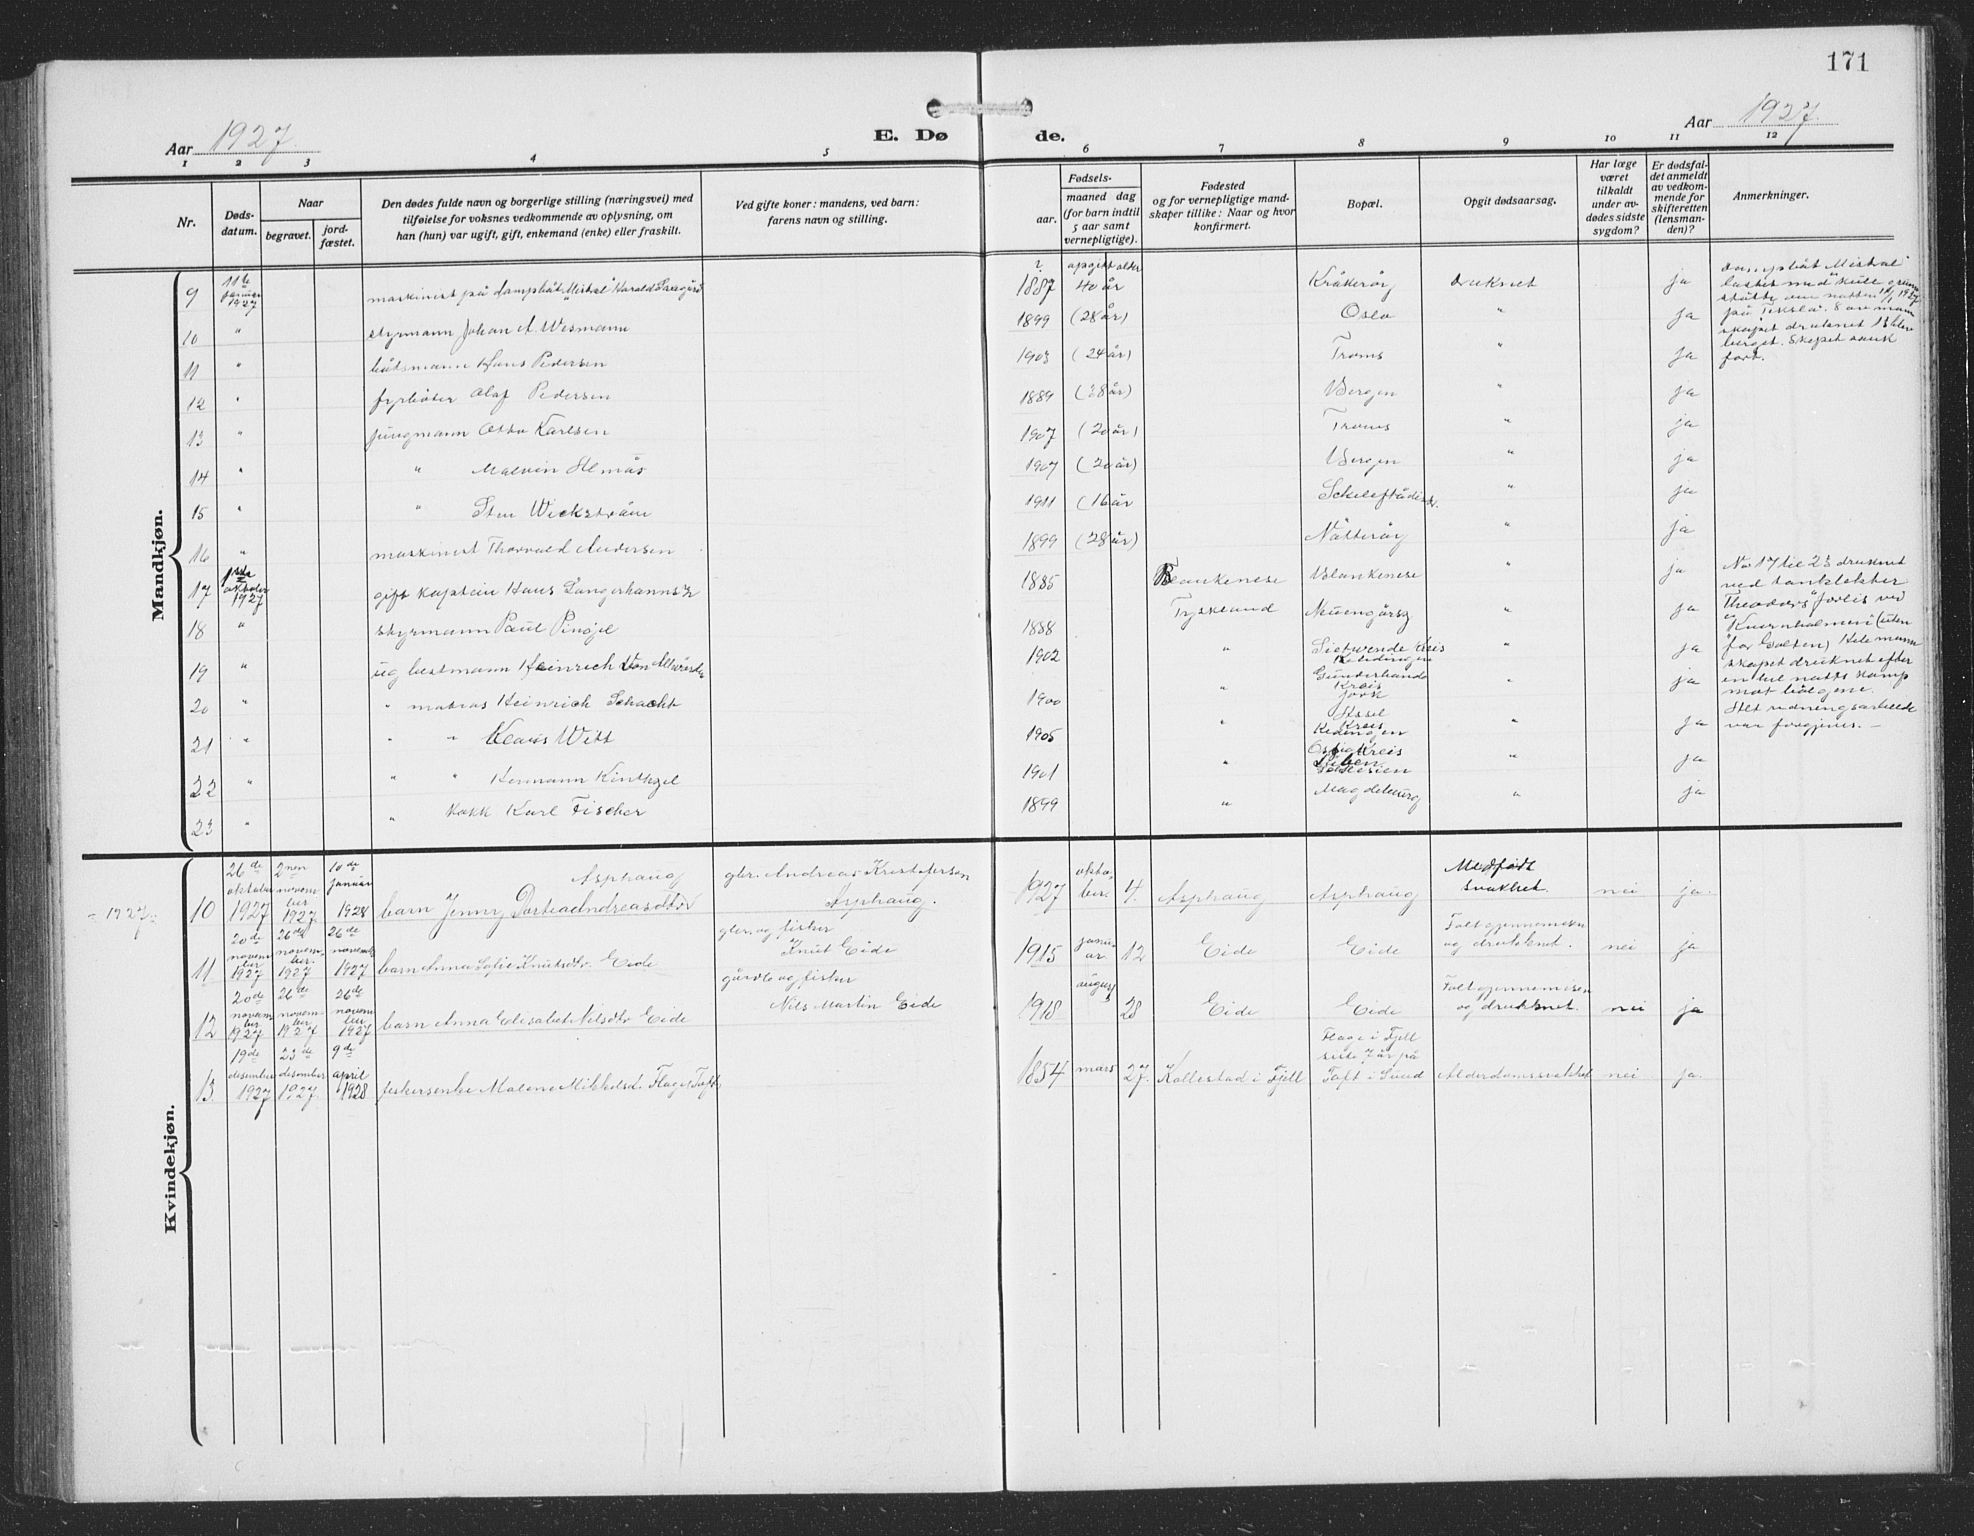 171
Aar 1927
E. Dø de.
Aar 1927.
1 2 3 4 5 6 7 8 9 10 11 12
Nr.
Døds-
datum.
Naar
begravet.
jord-
fæstet.
Den dødes fulde navn og borgerlige stilling (næringsvei) med
tilføielse for voksnes vedkommende av oplysning, om
han (hun) var ugift, gift, enkemand (enke) eller fraskilt.
Ved gifte koner: mandens, ved barn:
farens navn og stilling.
Fødsels-
aar.
maaned dag
(for barn indtil
5 aar samt
vernepligtige).
Fødested
og for vernepligtige mand-
skaper tillike: Naar og hvor
konfirmert.
Bopæl.
Opgit dødsaarsag.
Har læge
været
tilkaldt
under av-
dødes sidste
sygdom?
Er dødsfal-
det anmeldt
av vedkom-
mende for
skifteretten
(lensman-
den)?
Anmerkninger.
Mandkjøn.
9 11te januar 1927 maskinist på dampbåt "Mistral" Harald ? 1887 opgitt alder 40 år Kråkerøy druknet ja
10 " styrmann Johan A. Wesmann 1899 (28 år) Oslo " ja
11 " båtsmann Hans Pedersen 1903 (24 år) Troms " ja
12 " fyrbøter Olaf Pedersen 1889 (38 år) Bergen " ja
13 " jungmann Otto Karlsen 1907 (20 år) Troms " ja
14 " " Malvin Holmås 1907 (20 år) Bergen " ja
15 " " Sten Wickström 1911 (16 år " ja
16 " maskinist Thorvald Andersen 1899 (28 år) Nøtterøy " ja
Dampbåt "Mistral"
lastet med kull
støtte om natten 11/1 1927
på 8 av mann
skapet druknet 13 blev
berget. Skipet sank
fort.
17 1ste oktober 1927 gift kaptein Hans Langerhannsz 1885 Blankenese Blankenese " ja
18 " styrmann Paul Pingel 1888 Tyskland " ja
19 " ug bestmann Heinrich Von 1902 " Kreis " ja
20 " " matros Heinrich Schacht 1900 " Kreis Jork " ja
21 " " " Klaus Witt 1905 " Assel Kreis Kedingen " ja
22 " " " Hermann 1901 " Kreis " ja
23 " " kokk Karl Fischer 1899 " Magdeburg " ja
No 17 til 23 druknet
ved tanklekter
"Theodors" forlis ved
Kvernholmen i (uten
for Golten) Hele mann
skapet druknet efter
en hel natts kamp
mot bølgene.
Alt redningsarbeide
var forgjeves. —
Kvindekjøn.
- 1927 -
10 26de oktober 1927 2nen november 1927 10de januar 1928 barn Jenny Andreasdtr Asphaug gbr. Andreas Kristofersen Asphaug. 1927 oktober 4. Asphaug Asphaug Medfødt svakhet. nei ja.
11 20de november 1927 26de november 1927 26de november 1927 barn Anna Sofie Knutsdtr. Eide gbr. og fisker Knut Eide 1915 januar 12 Eide Eide Falt gjennem isen og druknet. nei ja
12 20de november 1927 26de november 1927 26de november 1927 barn Anna Elisabet Nilsdtr Eide gårdbr og fisker Nils Martin Eide 1918 august 28 Eide Eide Falt gjennem isen og druknet. nei ja
13. 19de desember 1927 23de desember 1927. 9de april 1928 fiskerenke Malene Mikkelsd. Flage, Toft 1854 mars 27. Kallestad i Fjell Flage i Fjell siste 7 år på Toft i Sund Alderdomssvakhet nei ja.